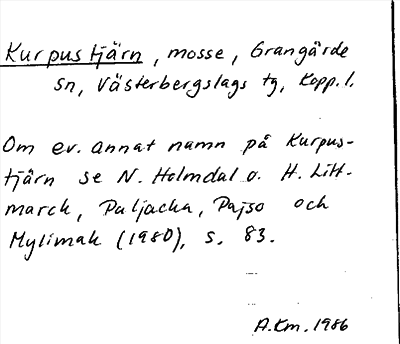 Kurpustjärn, mosse, Grangärde
sn, Västerbergslags tg, Kopp.l.
Om ev. annat namn på Kurpus-
tjärn se N. Holmdal o. H. Litt-
march, Paljacka, Pajso och
Mylimak (1980), s. 83.
A.Km. 1986